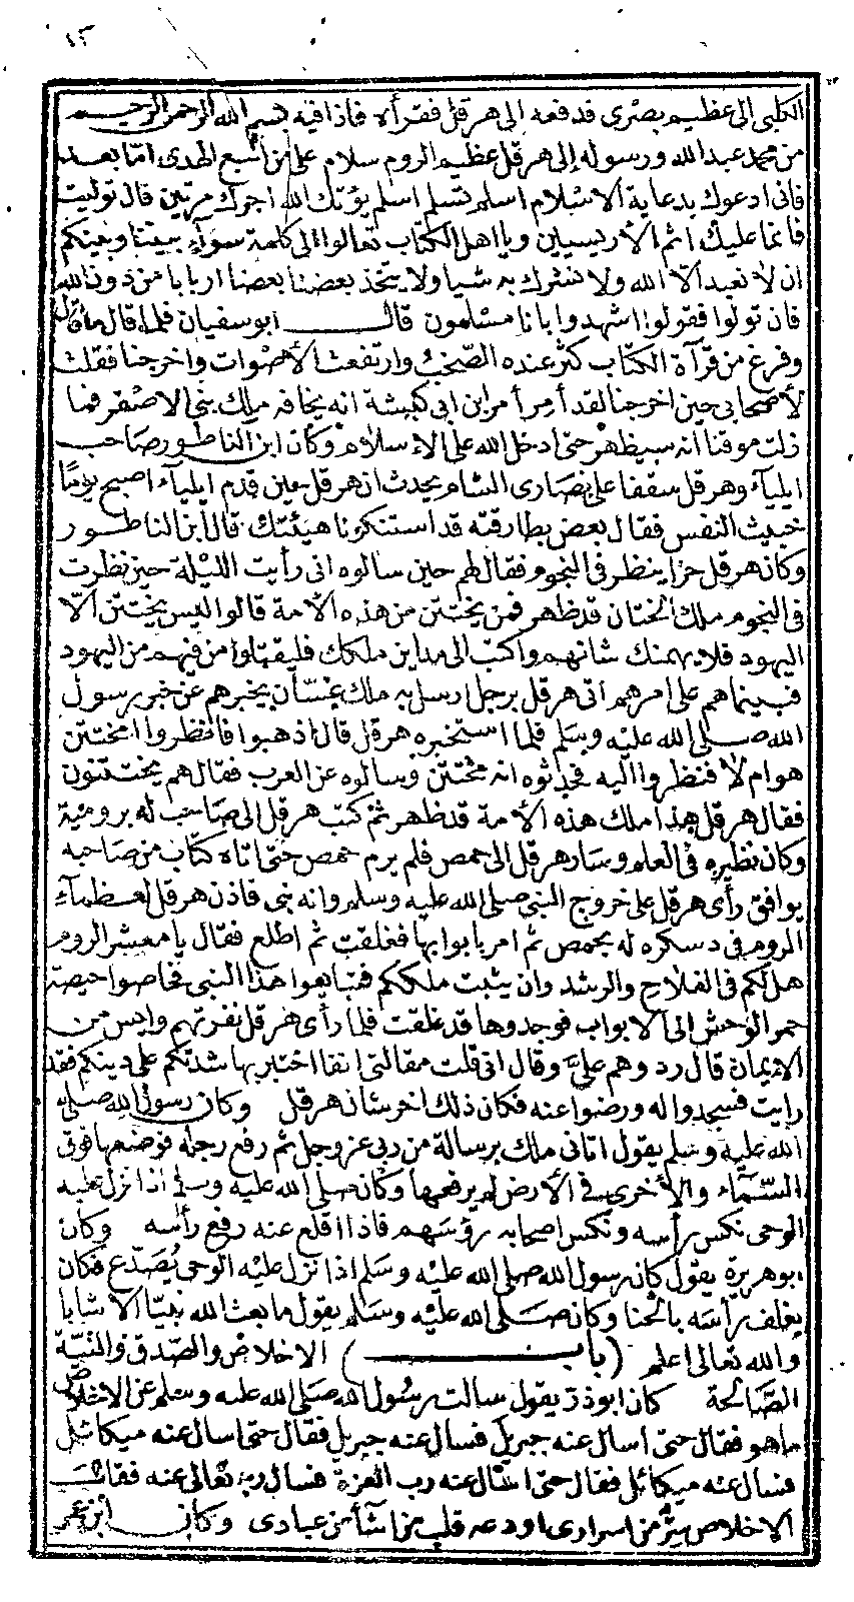 ١٣
الكلبي الى عظيم بصرى فدفعه الى هرقل فقرأه فاذا فيه بسم الله الرحمن الرحيم
من محمد عبد الله ورسوله إلى هرقل عظيم الروم سلام على من اتبع الهدى امّا بعد
فانى ادعوك بدعاية الاسلام اسلم تسلم اسلم يؤتك الله اجرك مرتين فان توليت
فانما عليك اثم الأريسيين ويا اهل الكتاب تعالوا الى كلمة سوآء بيننا وبينكم
ان لا نعبد الّا الله ولا نشرك به شيا ولا يتخذ بعضنا بعضا اربابا من دون الله
فان تولوا فقولوا اشهدوا بانا مسلمون قال ابوسفيان فلما قال ما قال
وفرغ من قرآة الكتاب كثر عنده الصّخبُ وارتفعت الأصوات واخرجنا فقلت
لأصحابى حين اخرجنا لقد أمِر أمر ابن ابى كبشة انه يخافه ملك بنى الاصفر فما
زلت موقنا انه سيظهر حتى ادخل الله على الاسلام وكان ابن الناطور صاحب
ايليآء وهرقل سقفا على نصارى الشام يحدث ان هرقل حين قدم ايليآء اصبح يومًا
خبيث النفس فقال بعض بطارقته قد استنكرنا هيئتك قال ابن الناطور
وكان هرقل حزا ينظر فى النجوم فقال لهم حين سالوه انى رأيت الليلة حين نظرت
فى النجوم ملك الختان قد ظهر فمن يختتن من هذه الأمة قالوا ليس يختتن الّا
اليهود فلا يهمنك شانهم واكتب الى مداين ملكك فليقتلوا من فيهم من اليهود
فبينما هم على امرهم اتى هرقل برجل ارسل به ملك غسّان يخبرهم عن خبر رسول
الله صلى الله عليه وسلم فلما استخبره هرقل قال اذهبوا فانظروا امختتن
هو ام لا فنظروا اليه فحدثوه انه مختتن وسالوه عن العرب فقال هم يختتنون
فقال هرقل هذا ملك هذه الأمة قد ظهر ثم كتب هرقل الى صاحب له برومية
وكان نظيره فى العلم وسار هرقل الى حمص فلم يرم حمص حتى اتاه كتاب من صاحبه
يوافق رأى هرقل على خروج النبى صلى الله عليه وسلم وانه نبى فاذن هرقل لعظمآء
الروم فى دسكره له بحمص ثم امر بابوابها فغلقت ثم اطلع فقال يا معشر الروم
هل لكم فى الفلاح والرشد وان يثبت ملككم فتبايعوا هذا النبى فحاصوا حيصة
حمر الوحش الى الابواب فوجدوها قد غلقت فلما رأى هرقل نفرتهم وايس من
الايمان قال ردوهم علىّ وقال انى قلت مقالتى انفا اختبر بها شدتكم على دينكم فقد
رايت فسجدوا له ورضوا عنه فكان ذلك اخر شان هرقل وكان رسول الله صلى
الله عليه وسلم يقول اتانى ملك برسالة من ربى عز وجل ثم رفع رجله فوضعها فوق
السّمآء والأخرى فى الأرض لم يرفعها وكان صلى الله عليه وسلم اذا نزل عليه
الوحى نكس رأسه ونكس اصحابه رؤسهم فاذا اقلع عنه رفع رأسه وكان
ابوهريرة يقول كان رسول الله صلى الله عليه وسلم اذا نزل عليه الوحى يُصدّع فكان
يغلف رأسه بالحنا وكان صلى الله عليه وسلم يقول ما بعث الله نبيّا الا شابا
والله تعالى اعلم (باب) الاخلاص والصّدق والنيّة
الصّالحة كان ابوذر يقول سالت رسول الله صلى الله عليه وسلم عن الاخلاص
ما هو فقال حتى اسال عنه جبريل فسال عنه جبريل فقال حتى اسال عنه ميكائيل
فسال عنه ميكائيل فقال حتى اسال عنه رب العزة فسال ربه تعالى عنه فقال
الاخلاص سرّ من اسرارى اودعه قلب من اشآ من عبادى وكان ابن عمر